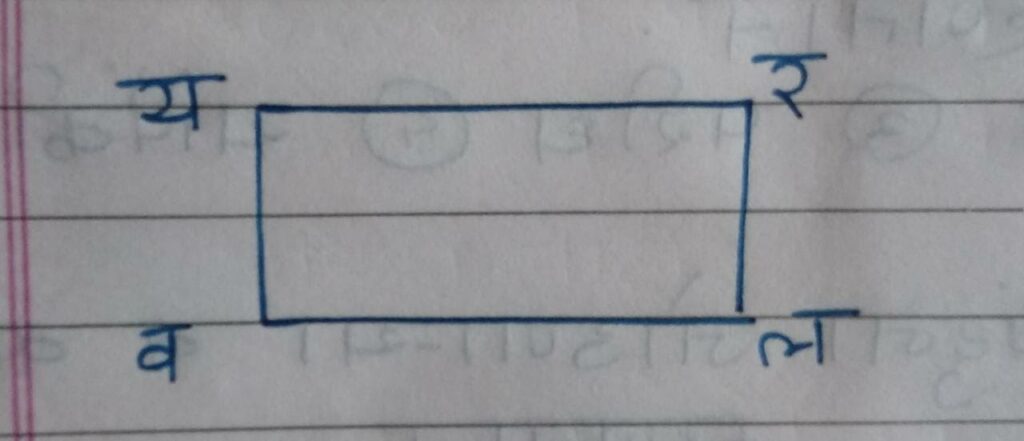 य र
व ल